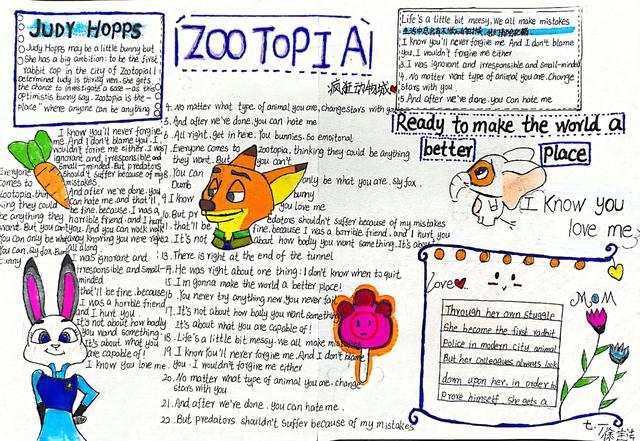 JUDY HOPPS
Judy Hopps may be a little bunny but
She has a big ambition: to be the first
rabbit cop in the city of Zootopia!
determined Judy is thrilled
the chance to investigate a case - as this
optimistic bunny say. Zootopia is the -
place "where anyone can be anything
ZOOTOPIA
疯狂动物城
Life's a little bit meesy. We all make mistakes
I know you'll never forgive me. And I don't blame
you. I wouldn't forgive me either
3. I was ignorant and irresponsible and small-minded
4. No matter want type of animal you are. Change
stars with you.
5. And after we're done. you can hate me
Ready to make the world a
better place
I know You
love me
4. No matter what type of animal you are, change stars with you
5. And after we're done. you can hate me
6. All right. get in here. You bunnies. So emotional
7. Everyone comes to zootopia, thinking they could be anything
they want. But you can't
8. You can only be what you are. Sly fox.
Dumb bunny
9. I know you love me
10. But predators shouldn't suffer because of my mistakes
11. that'll be fine. because I was a horrible friend, and I hurt you
12. It's not about how badly you want something. It's about
13. There is right at the end of the tunnel
14. He was right about one thing: I don't know when to quit
15. I'm gonna make the world a better place!
16. You never try anything new. You never fail
17. It's not about how badly you want something
It's about what you are capable of!
18. Life's a little bit messy. We all make mistakes
19. I know You'll never forgive me. And I don't blame
you. I wouldn't forgive me either
20. No matter what type of animal you are. change
stars with you
21. And after we're done. you can hate me.
22. But predators shouldn't suffer because of my mistakes
I know you'll never forgive
me. And I don't blame you. I
wouldn't forgive me either. I was
ignorant and irresponsible and
small-minded. But predators
shouldn't suffer because of my
mistakes.
And after we're done. you
can hate me. and that'll
be fine. because I was a
horrible friend. and I hurt
you. And you can walk
away knowing you were right
all along
Everyone
comes to
Zootopia. thinking
they could
be anything they
want. But you can't
You can only be what
You can. Sly fox. Dumb
bunny
I was ignorant and
irresponsible and small-
minded
that'll be fine. because
I was a horrible friend
and I hurt you.
It's not about how badly
you want something.
It's about what you
are capable of!
I know you love me.
Love
MOM
Through her own stuggle
She became the first rabbit
Police in modern city animal
But her colleagues always look
down upon her. in order to
prove himself. she gets a